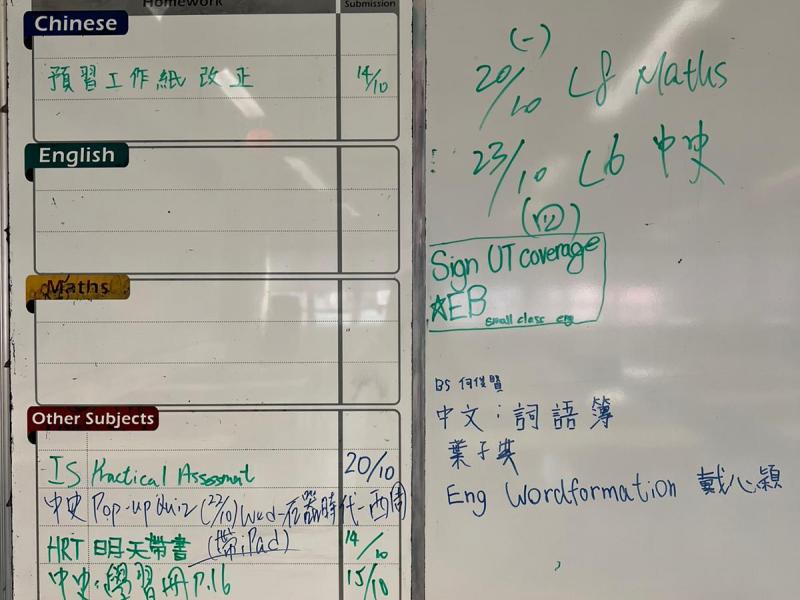 Homework
Submission
Chinese
預習工作紙改正 14/10
English
Maths
Other Subjects
IS Practical Assessment 20/10
中史 Pop-up Quiz (22/10) Wed-石器時代-西周
HRT 明天帶書 (帶iPad) 14/10
中史:學習冊 P.16 15/10
(一)
20/10 L8 Maths
23/10 L6 中史
(四)
Sign UT coverage
☆EB
small class eng
BS 何俊賢
中文:詞語簿
葉子英
Eng Wordformation 戴心穎